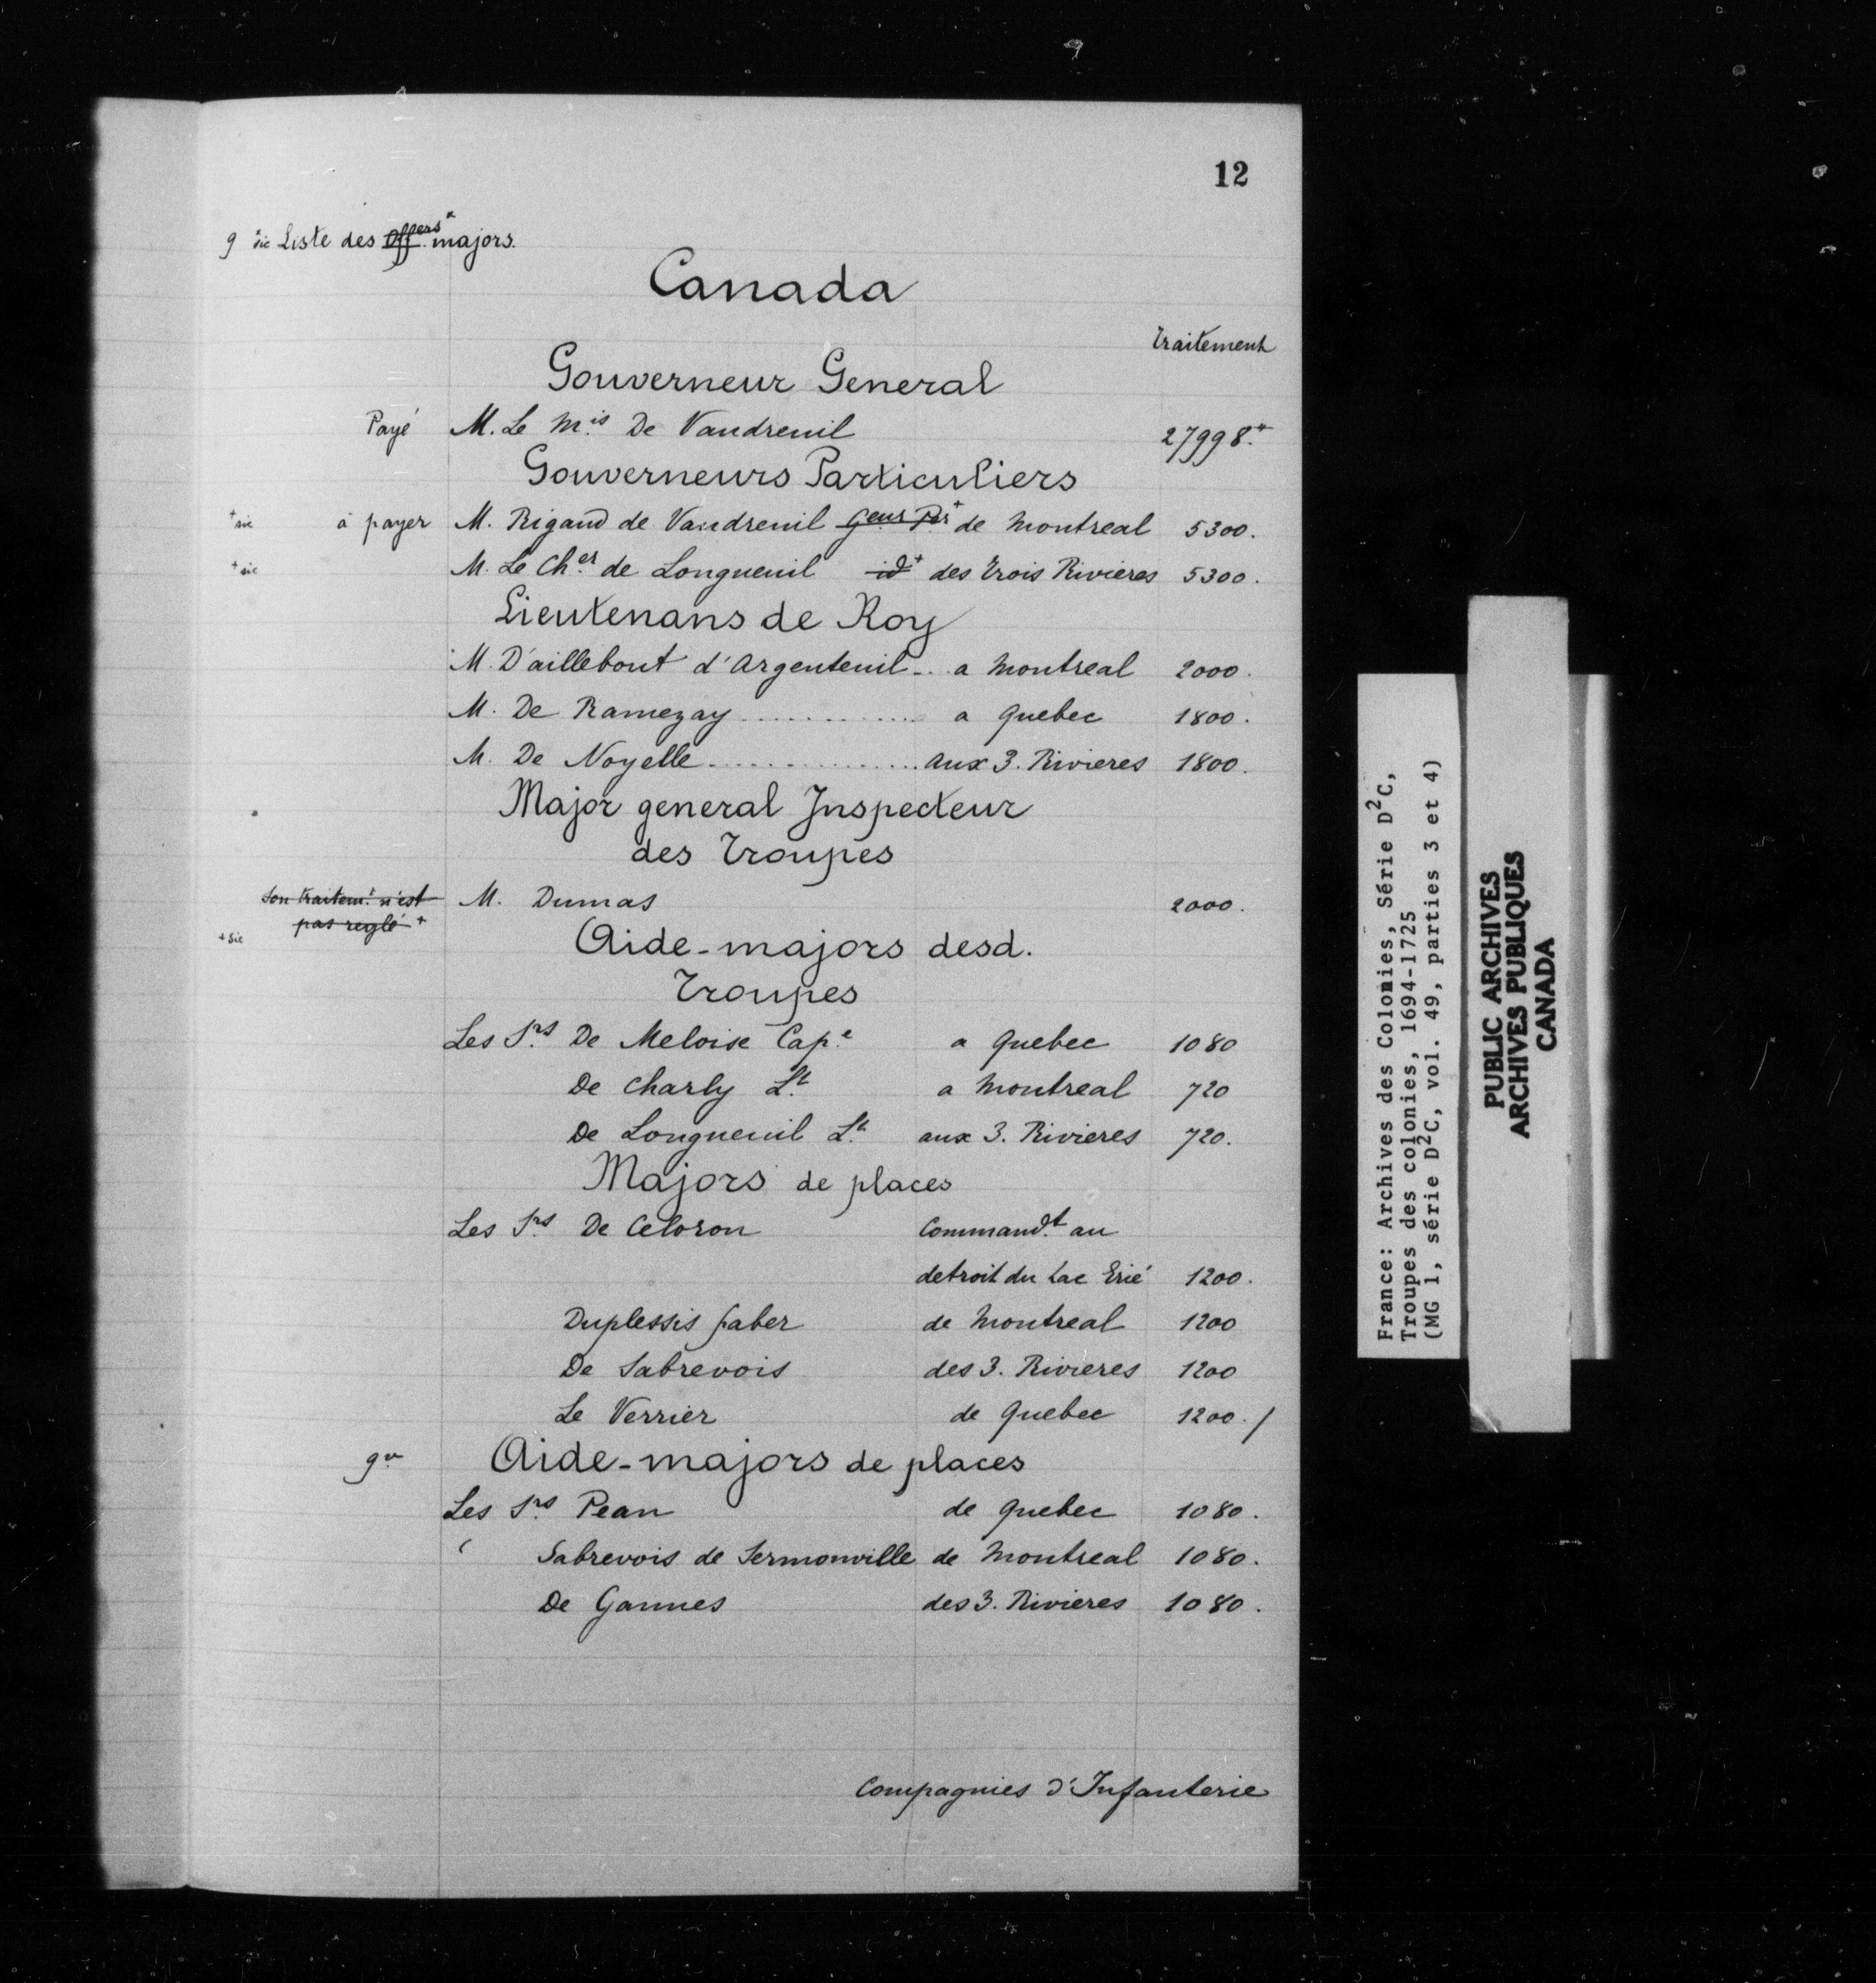 12
9 *sic Liste des Offers* majors.
Canada
Traitement
Gouverneur General
Payé M. Le Mis De Vaudreuil 27998.#
Gouverneurs Particuliers
+sic à payer M. Rigaud de Vaudreuil Geur Per+ de Montreal 5300.
+sic M. Le Cher de Longueuil id+ des Trois Rivieres 5300.
Lieutenans de Roy
M. D'aillebout d'Argenteuil... a Montreal 2000.
M. De Ramezay............ a Quebec 1800.
M. De Noyelle............... aux 3. Rivieres 1800.
Major general Inspecteur
des Troupes
Son traitemt. n'est M. Dumas 2000.
pas reglé +
+sic
Aide-majors desd.
Troupes
Les Srs De Meloise Cape a Quebec 1080
De Charly Lt. a Montreal 720
De Longueuil Lt. aux 3. Rivieres 720.
Majors de places
Les Srs De Celoron Commandt. au
detroit du Lac Erié 1200.
Duplessis faber de Montreal 1200
De Sabrevois des 3. Rivieres 1200
Le Verrier de Quebec 1200. /
Aide-majors de places
Les Srs Pean de Quebec 1080.
Sabrevois de Sermonville de Montreal 1080.
De Gannes des 3. Rivieres 1080.
Compagnies d'Infanterie
France: Archives des Colonies, Série D²C,
Troupes des colonies, 1694-1725
(MG 1, série D²C, vol. 49, parties 3 et 4)
PUBLIC ARCHIVES
ARCHIVES PUBLIQUES
CANADA